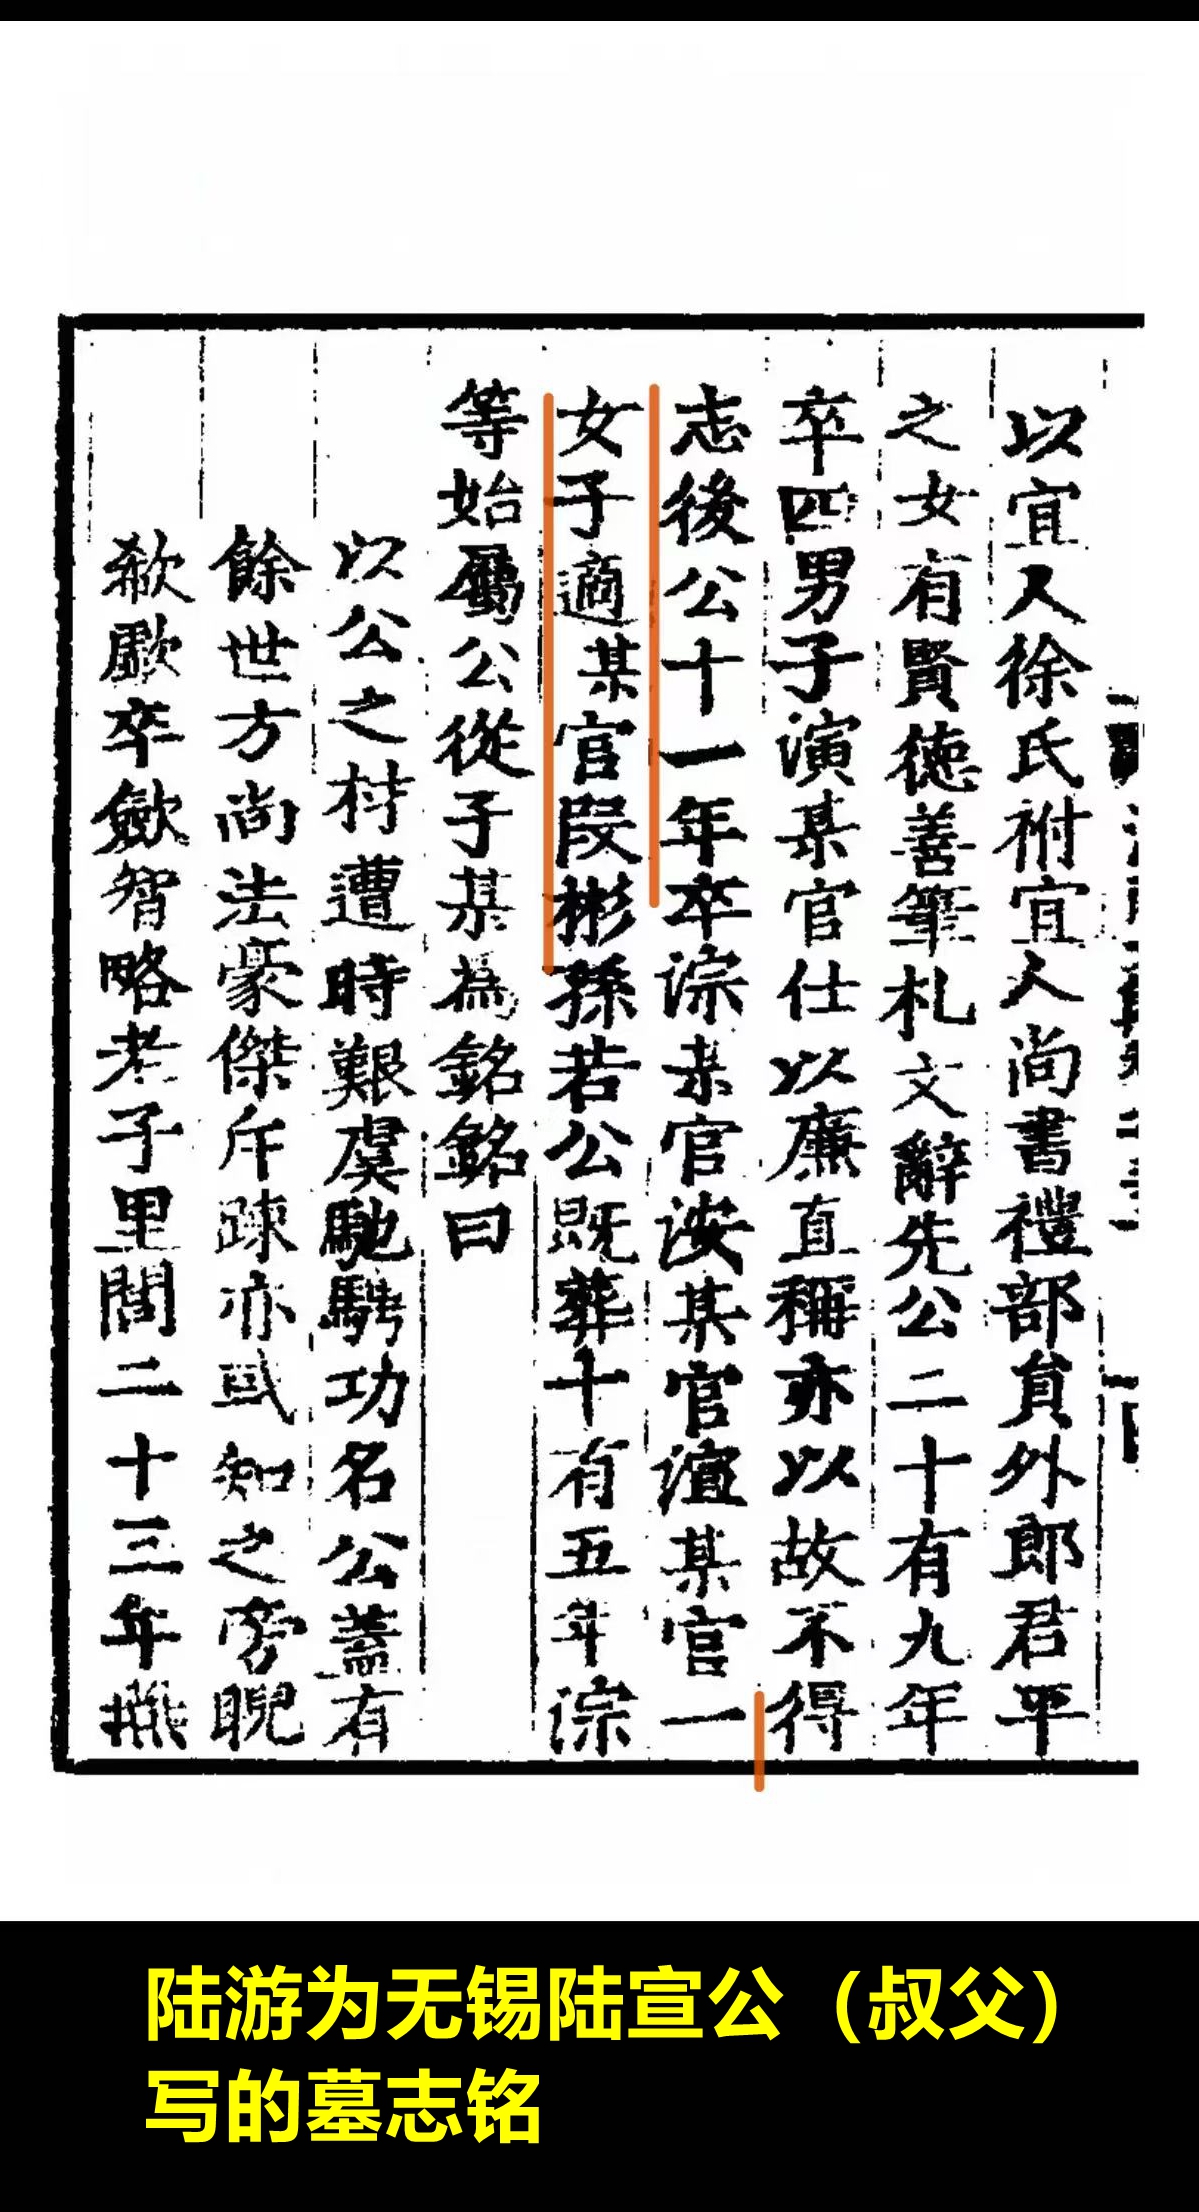 以宜人徐氏祔宜人尚書禮部員外郎君平
之女有賢德善筆札文辭先公二十有九年
卒四男子演某官仕以廉直稱亦以故不得
志後公十一年卒淙某官浚某官渲某官一
女子適某官段彬孫若公既葬十有五年淙
等始屬公從子某為銘銘曰
以公之材遭時艱虞馳騁功名公蓋有
餘世方尚法豪傑斥疎亦或知之旁睨
欷歔卒斂智略老子里閭二十三年燕
陆游为无锡陆宣公（叔父）
写的墓志铭